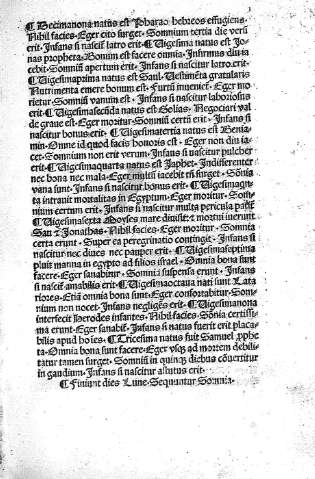 ¶ Decimanona natus est Pharao hebreos effugiens.
Nihil facies. Eger cito surget. Somnium tertia die verū
erit. Infans si nascit̄ latro erit. ¶ Uigesima natus est Jo-
nas propheta. Bonum est facere omnia. Infirmus diu ia
cebit. Somniū apertum erit. Infans si nascitur latro erit.
¶ Uigesimaprima natus est Saul. Uestimēta gratularis
Nutrimenta emere bonum est. Furtū inueniet̄. Eger mo
rietur. Somniū vanum est. Infans si nascitur laboriosus
erit. ¶ Uigesimasecūda natus est Golias. Negociari val
de graue est. Eger moritur. Somniū certū erit. Infans si
nascitur bonus erit. ¶ Uigesimatertia natus est Benia-
min. Omne id quod facis honoris est. Eger non diu ia-
cet. Somnium non erit verum. Infans si nascitur pulcher
erit. ¶ Uigesimaquarta natus est Japhet. Indifferenter
nec bona nec mala. Eger multū iacebit tn̄ surget. Sōnia
vana sunt. Infans si nascitur bonus erit. ¶ Uigesimaqn-
ta intrauit mortalitas in Egyptum. Eger moritur. Som-
nium certum erit. Infans si nascitur multa pericula patit̄
¶ Uigesimasexta Moyses mare diuisit: & mortui fuerunt
Sau & Jonathas. Nihil facies. Eger moritur. Somnia
certa erunt. Super ea peregrinatio contingit. Infans si
nascitur nec diues nec pauper erit. ¶ Uigesimaseptima
pluit manna in egypto ad filios israel. Omnia bona sunt
facere. Eger sanabitur. Somnia suspensa erunt. Infans
si nascit̄ amabilis erit. ¶ Uigesimaoctaua nati sunt Lata
riores. Etiā omnia bona sunt. Eger confortabitur. Som-
nium non nocet. Infans negligēs erit. ¶ Uigesimanona
interfecit Herodes infantes. Nihil facies. Sōnia certissi-
ma erunt. Eger sanabit̄. Infans si natus fuerit erit placa-
bilis apud hoīes. ¶ Tricesima natus fuit Samuel pphe
ta. Omnia bona sunt facere. Eger vsq; ad mortem debili-
tatur tamen surget. Somniū in quinq; diebus cōuertitur
in gaudium. Infans si nascitur astutus erit.
¶ Finiunt dies Lune. Sequuntur Somnia.